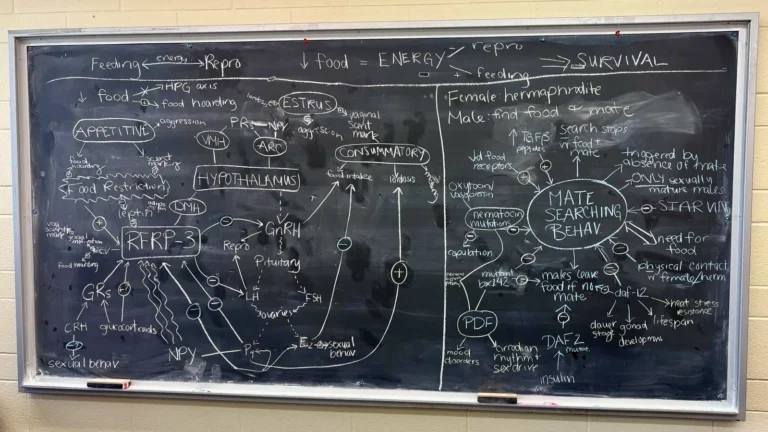 Feeding ⟷ energy Repro
↓ food = ENERGY
- repro
+ feeding
⇒ SURVIVAL
↓ food
HPG axis
+ food hoarding
APPETITIVE
aggression
food hoarding
scent marking
Food Restriction
leptin
DMH
RFRP-3
food hoarding
GRs
CRH
glucocorticoids
sexual behav
VMH
ARC
HYPOTHALAMUS
ESTRUS
vaginal scent mark
aggression
CONSUMMATORY
food intake
lordosis
GnRH
Repro
Pituitary
LH
FSH
ovaries
E₂
sexual behav
NPY
P₄
Female: hermaphrodite
Male: find food & mate
↑TGFβ
peptides
search stops
w/ food +
mate
food receptors
triggered by
absence of mate
ONLY sexually
mature males
oxytocin/
vasopressin
MATE
SEARCHING
BEHAV
STARVIN
nematocin
mutations
copulation
need for
food
physical contact
w/ female/herm
mutant
PDF
mood
disorders
circadian
rhythm +
sex drive
makes leave
food if no
mate
DAF2
insulin
daf-12
dauer
stage
gonad
development
lifespan
heat stress
resistance